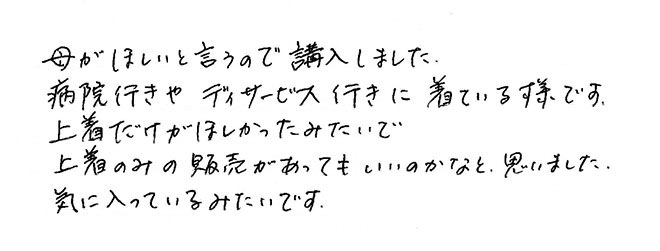 母がほしいと言うので講入しました.
病院行きや ディサービス行きに 着ている様です.
上着だけがほしかったみたいで
上着のみの販売があってもいいのかなと、思いました.
気に入っているみたいです.